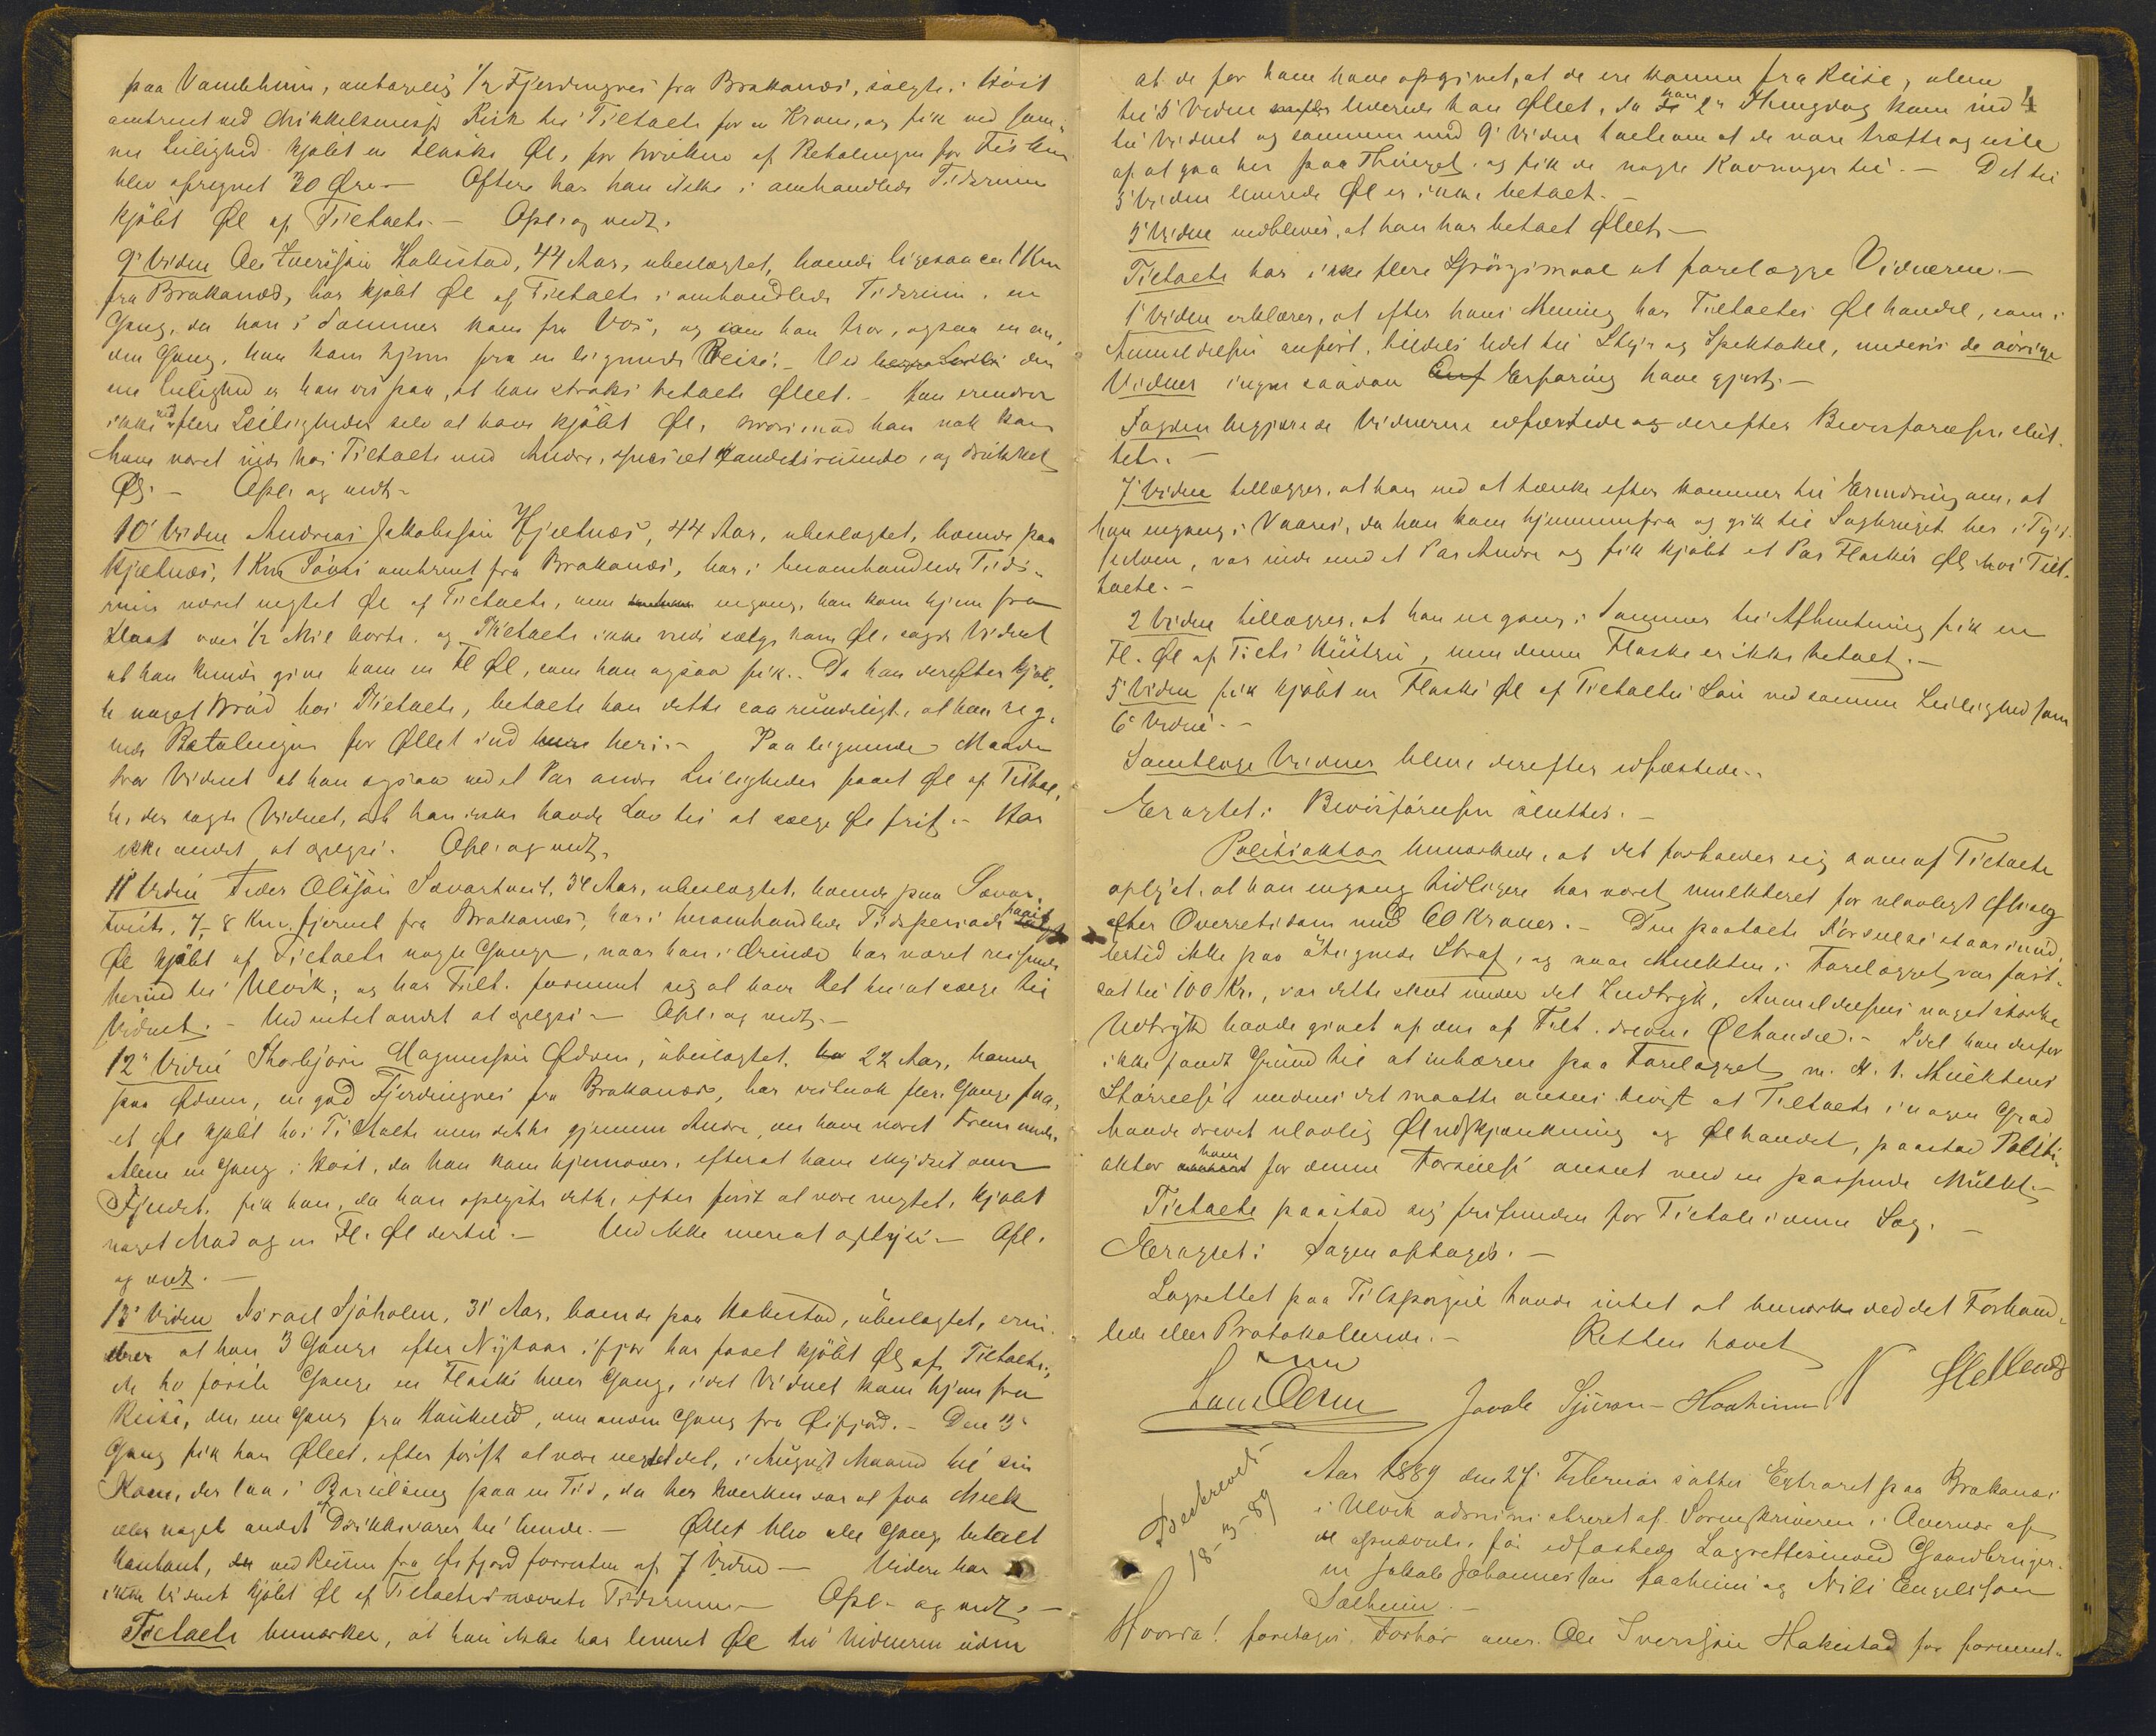 paa Vambheim, antagelig 1/2 Fjerdingvei fra Brakanæs, solgte i Høst
omtrent ved Mikkelsmess Fisk til Tiltalte for en Krone, og fik ved sam-
me Leilighed kjøbt en Flaske Øl, for hvilken af Betalingen for Fisken
blev afregnet 30 Øre. — Oftere har han ikke i omhandlede Tidsrum
kjøbt Øl af Tiltalte. — Opl. og vedt.
9' Vidne Ole Iversson Hakestad, 44 Aar, ubeslægtet, boende ligesaa ca 1 Km
fra Brakanæs, har kjøbt Øl af Tiltalte i omhandlede Tidsrum, en
Gang, da han i Sommer kom fra Vos, og som han tror, ogsaa en an-
den Gang, han kom hjem fra en lignende Reise. — Ved den
ene Leilighed er han vis paa, at han straks betalte Øllet. — Han erindrer
ikke ved flere Leiligheder selv at have kjøbt Øl, hvorimod han nok kan
have været inde hos Tiltalte med Andre, specielt Handelsreisende, og drukket
Øl. — Opl. og vedt. —
10' Vidne Andreas Jakobsson Hjeltnæs, 44 Aar, ubeslægtet, boende paa
Hjeltnæs, 1 Km Søvei omtrent fra Brakanæs, har i heromhandlede Tids-
rum været negtet Øl af Tiltalte, men engang, han kom hjem fra
Slaat over 1/2 Mil borte, og Tiltalte ikke vilde sælge ham Øl, sagde Vidnet
at han kunde give ham en Fl Øl, som han ogsaa fik. — Da han derefter kjøb-
te noget Brød hos Tiltalte, betalte han dette saa rundeligt, at han reg-
nede Betalingen for Øllet ind heri. — Paa lignende Maade
tror Vidnet at han ogsaa ved et Par andre Leiligheder faaet Øl af Tiltal-
te, der sagde Vidnet, at han ikke havde Lov til at sælge Øl frit. — Har
ikke andet at oplyse. Opl. og vedt.
11' Vidne Peder Olsson Sævartveit, 34 Aar, ubeslægtet, boende paa Sævar-
tveit, 7-8 Km. fjernet fra Brakanæs, har i heromhandlede Tidsperiode faaet
Øl kjøbt af Tiltalte nogle Gange, naar han i Ærinde har været reisende
herind til Ulvik, og har Tilt. forment sig at have Ret til at sælge til
Vidnet. — Ved intet andet at oplyse. — Opl. og vedt. —
12' Vidne Thorbjørn Magnusson Ødven, ubeslægtet, 22 Aar, boende
paa Ødven, en god Fjerdingvei fra Brakanæs, har vistnok flere Gange faa-
et Øl kjøbt hos Tiltalte men dette gjennem Andre, som have været Fremmede.
Alene en Gang i Høst, da han kom hjemover, efterat have skydset over
Fjeldet, fik han, da han oplyste dette, efter først at være negtet, kjøbt
noget Mad og en Fl. Øl dertil. — Ved ikke mere at oplyse. — Opl.
og vedt. —
13' Vidne Israel Sjøholm, 31 Aar, boende paa Hakestad, ubeslægtet, erin-
drer at han 3 Gange efter Nytaar ifjor har faaet kjøbt Øl af Tiltalte,
de to første Gange en Flaske hver Gang, idet Vidnet kom hjem fra
Reise, den ene Gang fra Haukelid, den anden Gang fra Øifjord. — Den 3'
Gang fik han Øllet, efter først at være negtet det, i August Maaned til sin
Kone, der laa i Barselseng paa en Tid, da her hverken var at faa Melk
eller noget andet af Drikkevarer til hende. — Øllet blev alle Gange betalt
kontant, ved Reisen fra Øifjord forresten af 7 Vidne — Videre har
ikke Vidnet kjøbt Øl af Tiltalte i nævnte Tidsrum. — Opl. og vedt. —
Tiltalte bemærker, at han ikke har leveret Øl til Vidnerne uden
at de for ham have opgivet, at de ere komne fra Reise, alene
til 5' Vidne leverede han Øllet, da han 2' Thingdag kom ind 4
til Vidnet og sammen med 9' Vidne talte om at de vare trætte og uslle
af at gaa her paa Thinget, og fik de nogle Kavringer til. — Det til
5' Vidne leverede Øl er ikke betalt. —
5' Vidne vedblever, at han har betalt Øllet. —
Tiltalte har ikke flere Spørgsmaal at forelægge Vidnerne. —
1' Vidne erklærer, at efter hans Mening har Tiltaltes Ølhandel, som i
Anmeldelsen anført, tildels ledet til Styr og Spektakel, medens de øvrige
Vidner ingen saadan Erfaring have gjort. —
Sagøren begjærede Vidnerne edfæstede og derefter Bevisførelsen slut-
tet. —
7' Vidne tillægger, at han ved at tænke efter kommer til Erindring om, at
han engang i Vaares, da han kom hjemmenfra og gik til Sagbruget her i Tys-
sedven, var inde med et Par Andre og fik kjøbt et Par Flasker Øl hos Tilt-
talte. —
2' Vidne tillægger, at han en gang i Sommer til Afhentning fik en
Fl. Øl af Tilts' Hustru, men denne Flaske er ikke betalt. —
5' Vidne fik kjøbt en Flaske Øl af Tiltaltes Søn ved samme Leilighed som
6' Vidne. —
Samtlige Vidner bleve derefter edfæstede. —
Eragtet: Bevisførelsen sluttes. —
Politiaktor bemærkede, at det forholder sig som af Tiltalte
oplyst, at han engang tidligere har været mulkteret for ulovligt Ølsalg
efter Overretsdom med 60 Kroner. — Den paatalte Forseelse staar imid-
lertid ikke paa øiegnede Straf, og naar Mulkten i Forelægget var fast-
sat til 100 Kr., var dette skeet under det Indtryk, Anmeldelsens noget stærke
Udtryk havde givet af den af Tilt. drevne Ølhandel. — Idet han derfor
ikke fandt Grund til at inhærere paa Forelægget m. H. t. Mulktens
Størrelse medens det maatte ansees bevist at Tiltalte i nogen Grad
havde drevet ulovlig Øludskjænkning og Ølhandel, paastod Politi-
aktor ham for denne Forseelse anseet med en passende Mulkt. —
Tiltalte paastod sig frifunden for Tiltale i denne Sag. —
Eragtet: Sagen optages. —
Lagrettet paa Tilspørgsel havde intet at bemærke ved det Forhand-
lede eller Protokollerede. — Retten hævet
Jacob Sjurson Haaheim N
Beskrevet
18-3-89
Aar 1889 den 27. Februar sattes Extraret paa Brakanæs
i Ulvik administreret af Sorenskriveren i Overvær af
de opnævnte, før edfæstede Lagrettesmænd Gaardbruger-
ne Jakob Johannesson Haaheim og Nils Engelsson
Sælheim. —
Hvorda! foretoges Forhør over Ole Iversson Hakestad for forment-